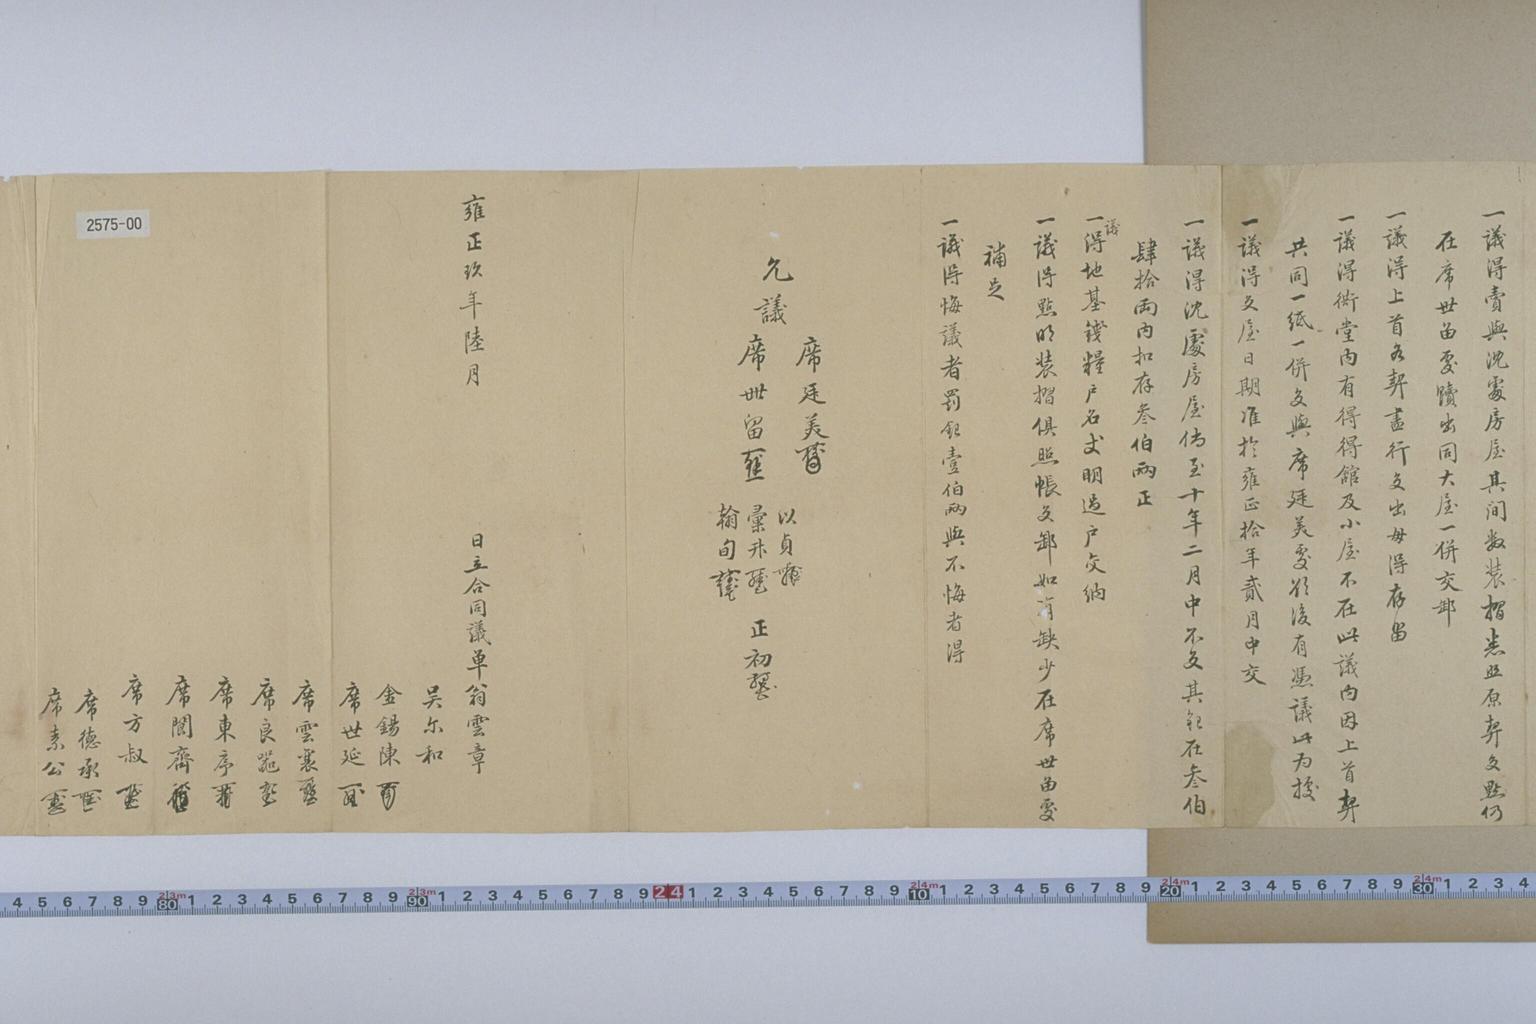 一議得賣與沈處房屋其间数装摺悉照原契交點仍
在席世留處贖出同大屋一併交卸
一議得上首各契盡行交出毋得存留
一議得衖堂内有得得館及小屋不在此議内因上首契
共同一紙一併交與席廷美處后後有憑議此为據
一議得交屋日期准於雍正拾年貳月中交
一議得沈處房屋倘至十年二月中不交其銀在叁伯
肆拾両内扣存叁伯两正
一議得地基錢糧户名丈明過户交納
一議得點明装摺俱照帳交卸如有缺少在席世留處
補足
一議得悔議者罰銀壹伯两與不悔者得
允議
席廷美
席世留
以貞
彙升
翰旬
正初
雍正玖年陸月
日立合同議单翁雲章
吴尔和
金錫陳
席世延
席雲襄
席良
席東序
席闇齋
席方叔
席德承
席素公
2575-00
4 5 6 7 8 9 80 1 2 3 4 5 6 7 8 9 90 1 2 3 4 5 6 7 8 9 24 1 2 3 4 5 6 7 8 9 10 1 2 3 4 5 6 7 8 9 20 1 2 3 4 5 6 7 8 9 30 1 2 3 4